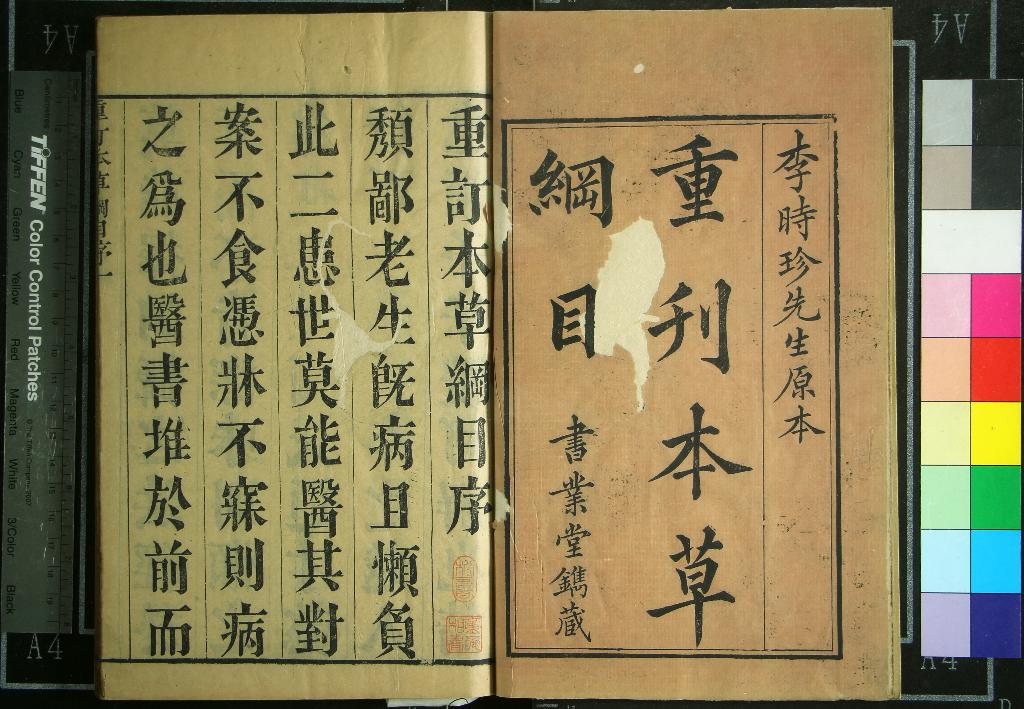 李時珍先生原本
重刊本草
綱目
書業堂鐫藏
重訂本草綱目序
頹鄙老生旣病且懶負
此二患世莫能醫其對
案不食憑牀不寐則病
之爲也醫書堆於前而
TIFFEN Color Control Patches
Blue
Cyan
Green
Yellow
Red
Magenta
White
3/Color
Black
A4
A4
A4
A4